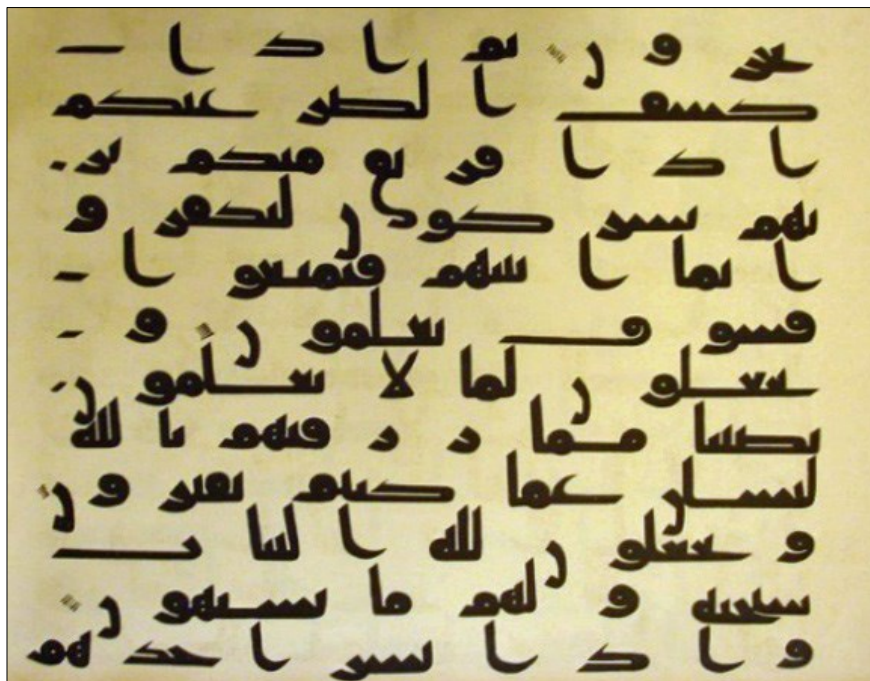 تجرون ثم اذا
كشف الضر عنكم
اذا فريق منكم بر
بهم يشركون ليكفرو
ا بما اتينهم فتمتعوا
فسوف تعلمون و
يجعلون لما لا يعلمون
نصيبا مما رزقنهم تالله
لتسلن عما كنتم تفترون
و يجعلون لله البنت
سبحنه و لهم ما يشتهون
و اذا بشر احدهم